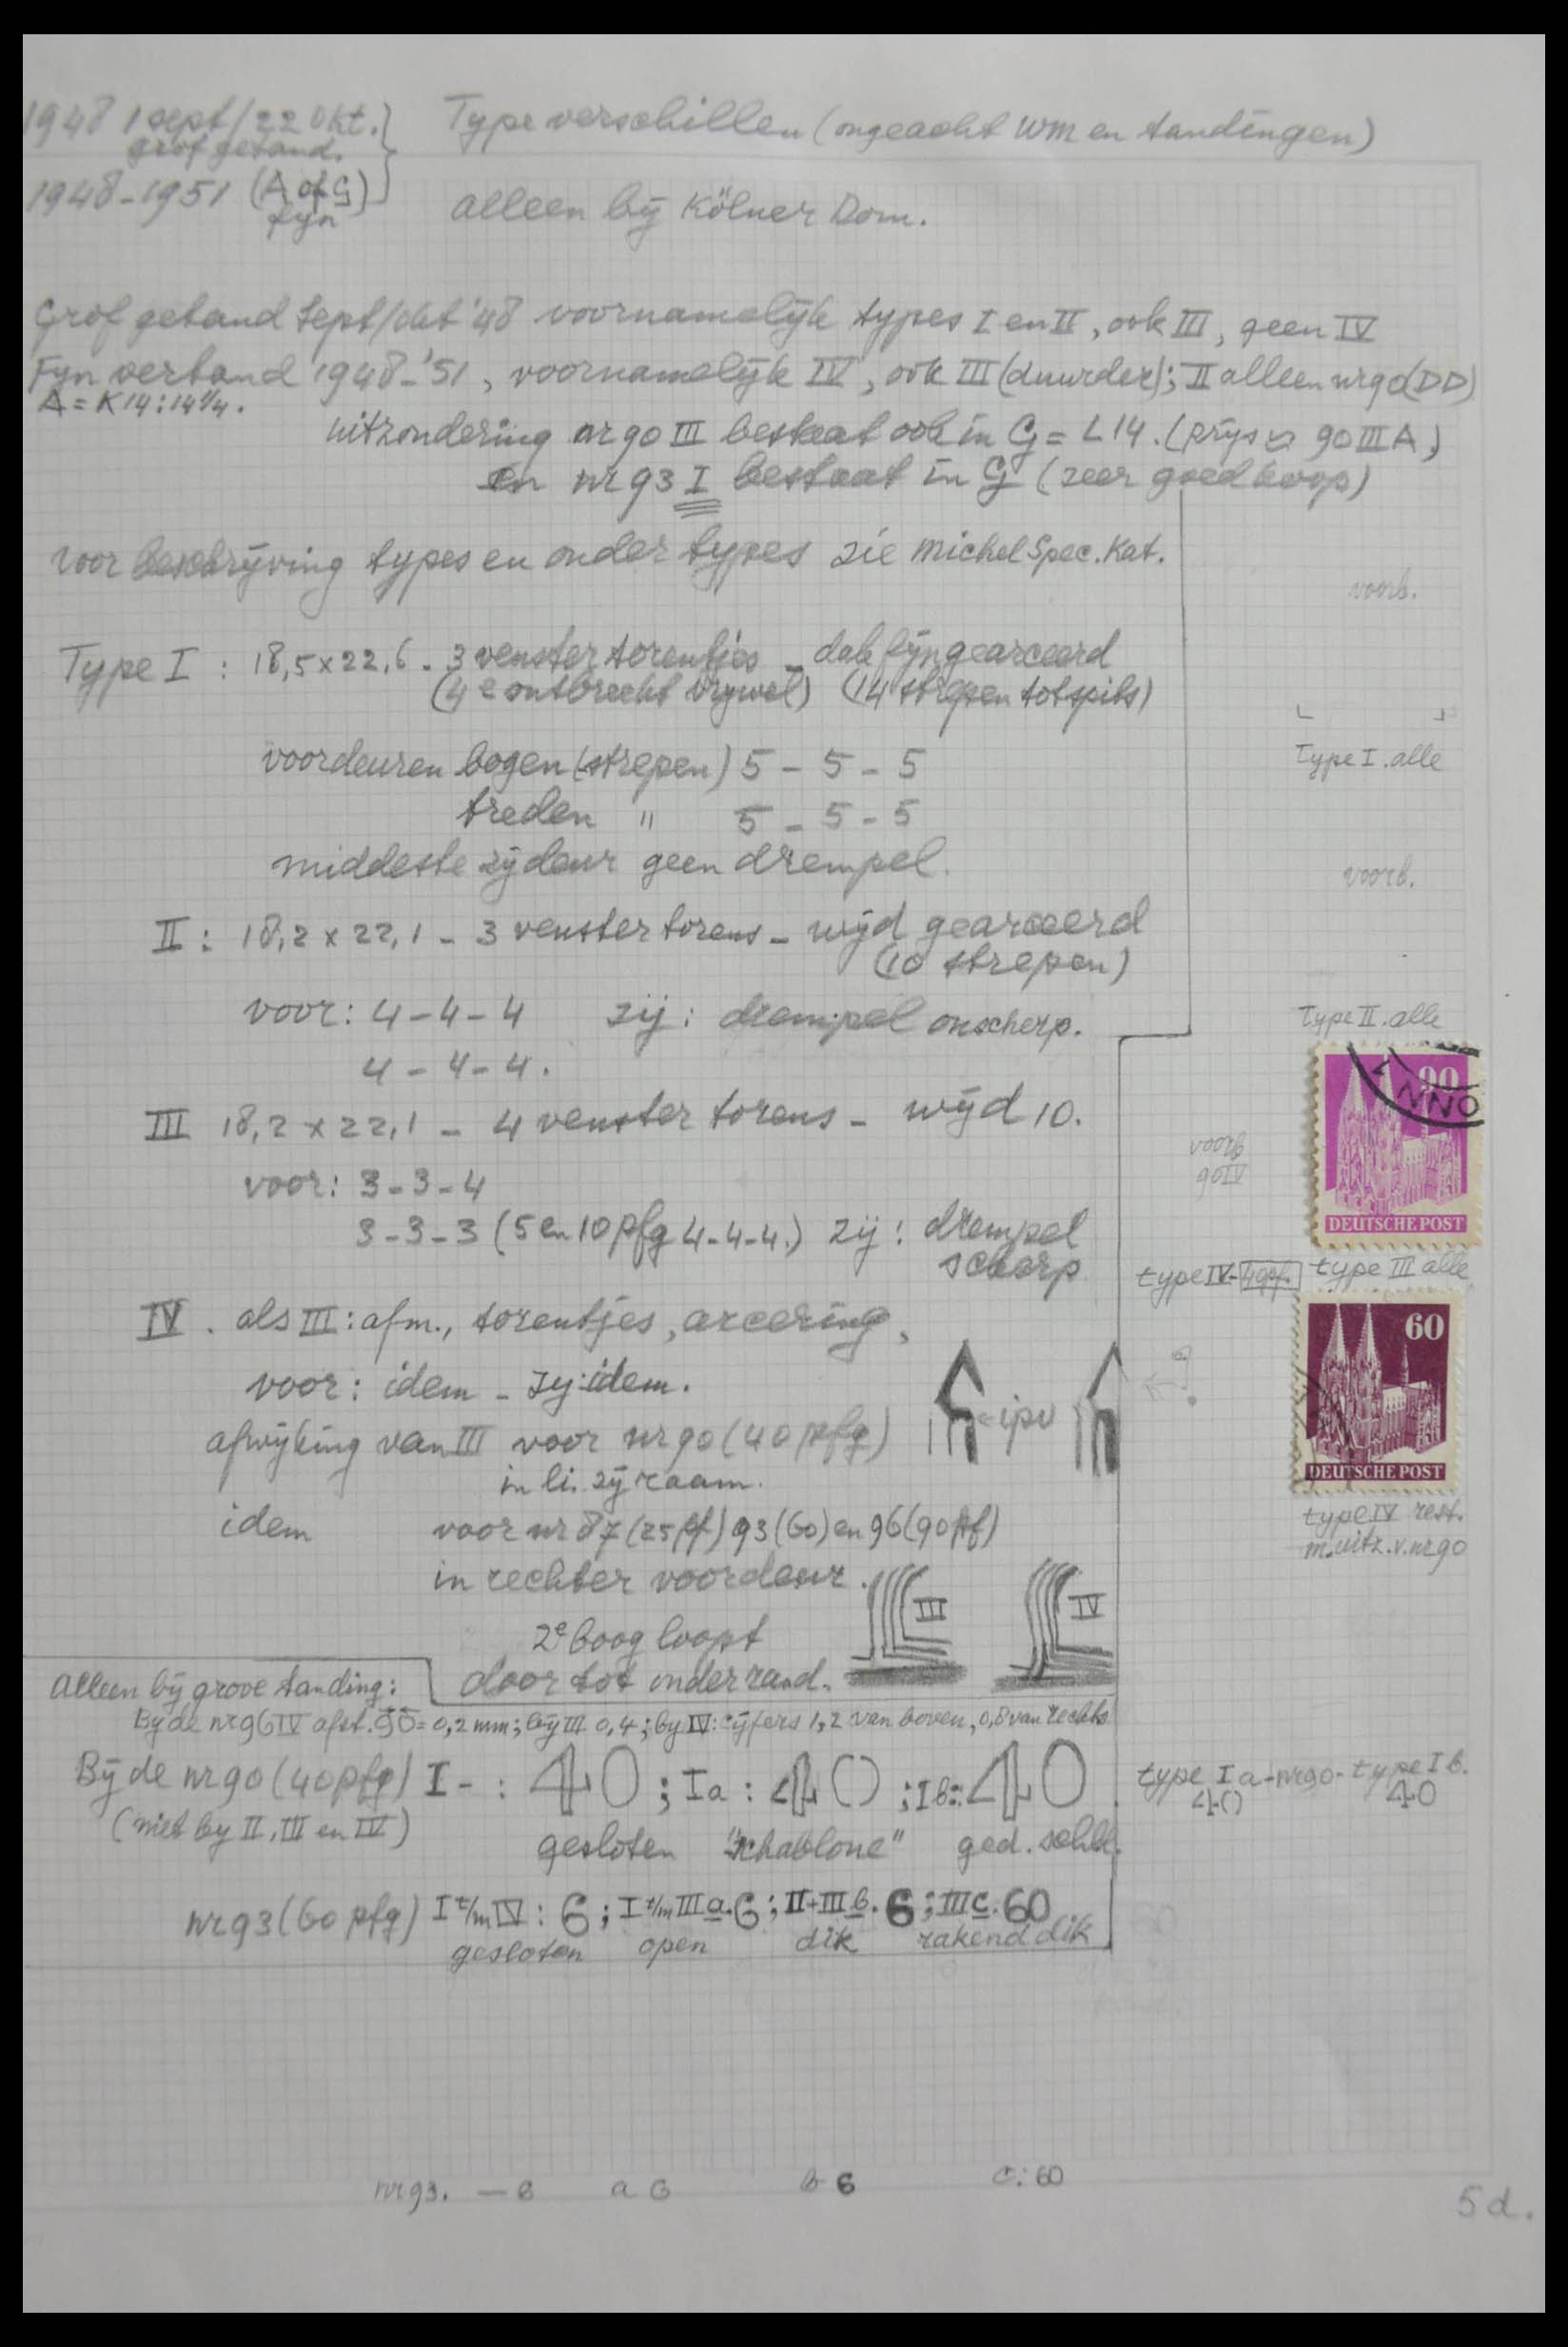 1948 1 sept/22 Okt. Type verschillen (ongeacht WM en tandingen)
grof getand.
1948-1951 (A of G) alleen bÿ Kölner Dom.
fyn
Grof getand sept/okt '48 voornamelÿk types I en II, ook III, geen IV
Fyn vertand 1948-'51, voornamelÿk IV, ook III (duurder); II alleen nr90(DD)
A = K14:14¼.
uitzondering nr 90 III bestaat ook in G = L14. (prÿs ≈ 90 III A)
en nr 93 I bestaat in G (zeer goedkoop)
voor beschrÿving types en onder types zie Michel Spec. Kat.
voorb.
Type I : 18,5 x 22,6 - 3 venster torentjes - dak fÿn gearceerd
(4e ontbreekt vrywel) (14 strepen tot spits)
voordeuren bogen (strepen) 5 - 5 - 5
type I. alle
treden " 5 - 5 - 5
middeste zÿdeur geen drempel.
voorb.
II : 18,2 x 22,1 - 3 venster torens - wÿd gearceerd
(10 strepen)
voor: 4-4-4 zij: drempel onscherp.
type II. alle
4 - 4 - 4.
90
DEUTSCHE POST
III 18,2 x 22,1 - 4 venster torens - wÿd 10.
voorb
90IV
voor: 3-3-4
3-3-3 (5 en 10 pfg 4-4-4.) zij: drempel
scherp
type IV - 40pf. type III alle
60
DEUTSCHE POST
IV. als III: afm., torentjes, arcering,
voor: idem - zy: idem.
afwÿking van III voor nr 90 (40 pfg) ipv
in li. zÿraam.
idem voor nr 87 (25 pf) 93 (60) en 96 (90 pf)
type IV rest.
m. uitz. v. nr 90
in rechter voordeur. III IV
2e boog loopt
door tot onderrand.
Alleen bÿ grove tanding:
By de nr 96 IV afst. 90 = 0,2 mm; bÿ III 0,4; by IV: cÿfers 1,2 van boven, 0,8 van rechts
Bÿ de nr 90 (40 pfg) I - : 40 ; Ia : 40 ; Ib : 40
type I a - nr90 - type I b.
40 40
(niet by II, III en IV)
gesloten "schablone" ged. schbl.
nr 93 (60 pfg) I t/m IV : 6 ; I t/m III a. 6 ; II + III b. 6 ; III c. 60
gesloten open dik rakend dik
nr 93. - 6 a 6 b 6 c: 60
5 d.